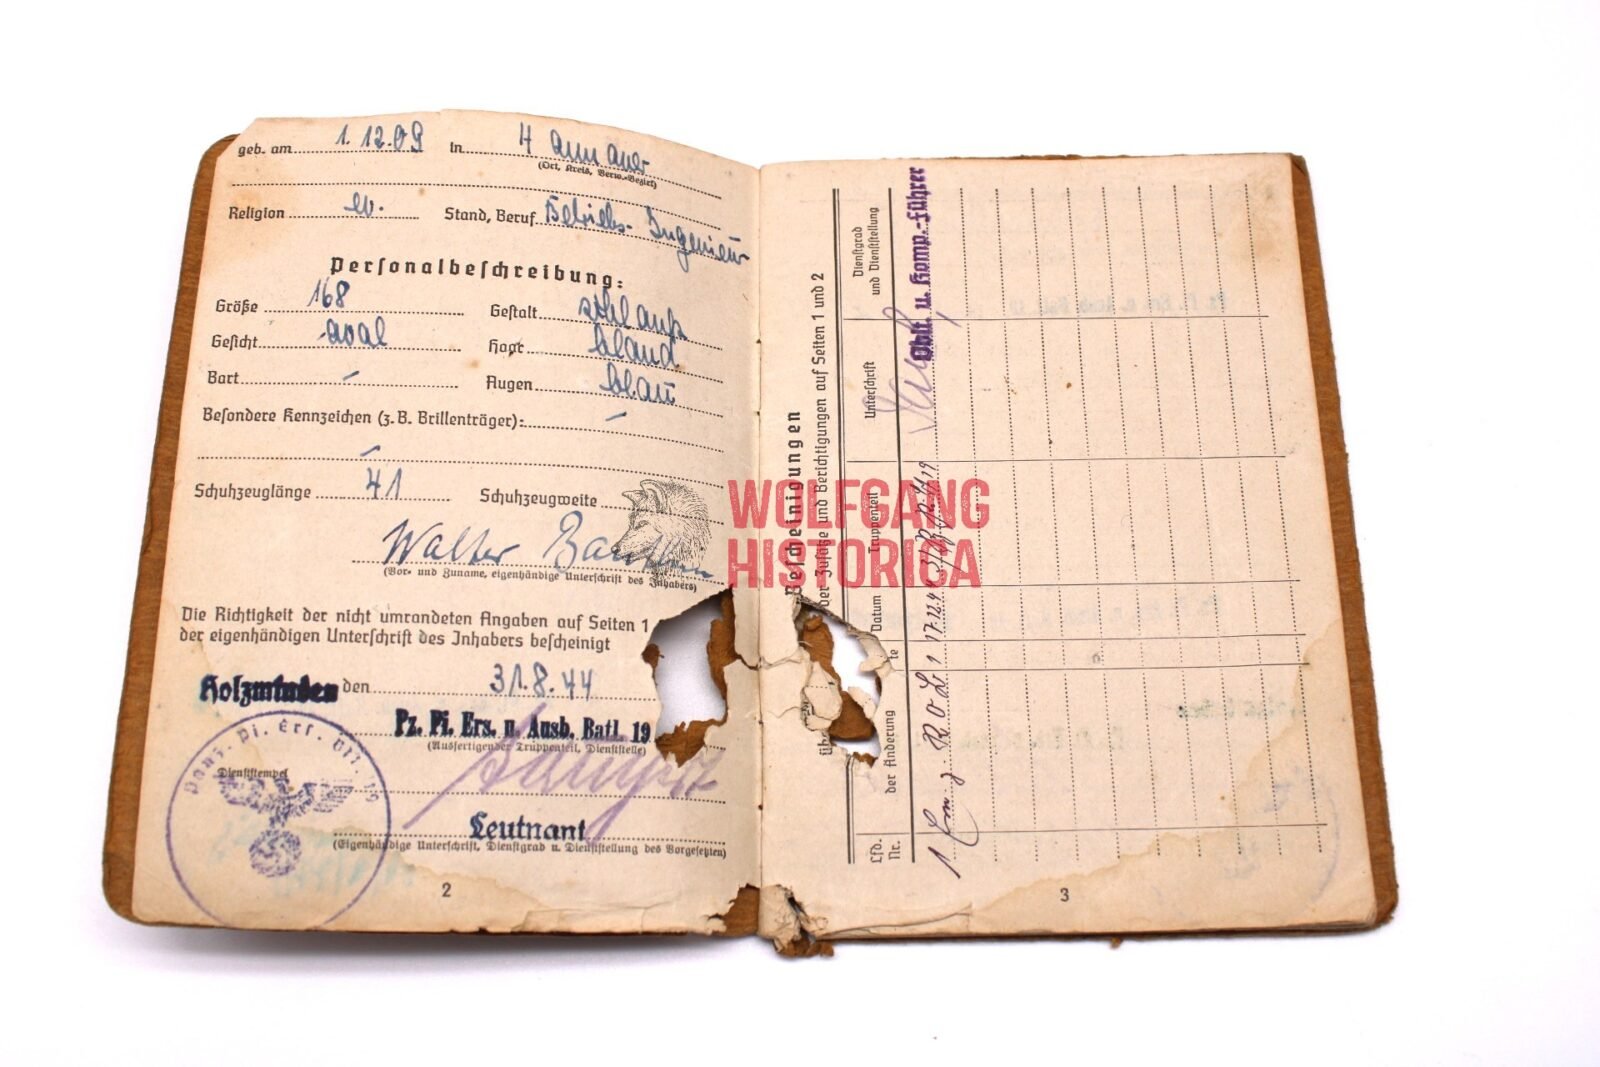 geb. am 1.12.09 in Hannover
(Ort, Kreis, Verw.-Bezirk)
Religion ev. Stand, Beruf Betriebs-Ingenieur
Personalbeschreibung:
Größe 168 Gestalt schlank
Gesicht oval Haar blond
Bart – Augen blau
Besondere Kennzeichen (z.B. Brillenträger): –
–
Schuhzeuglänge 41 Schuhzeugweite
Walter
(Vor- und Zuname, eigenhändige Unterschrift des Inhabers)
Die Richtigkeit der nicht umrandeten Angaben auf Seiten 1
der eigenhändigen Unterschrift des Inhabers bescheinigt
Holzminden den 31.8.44
Pz. Pi. Ers. u. Ausb. Batl. 19
(Ausfertigender Truppenteil, Dienststelle)
Panz. Pi. Ers. Btl. 19
Dienststempel
Leutnant
(Eigenhändige Unterschrift, Dienstgrad u. Dienststellung des Vorgesetzten)
2
WOLFGANG
HISTORICA
Bescheinigungen
über der Zusätze und Berichtigungen auf Seiten 1 und 2
Lfd. Nr. der Änderung te Datum Truppenteil Unterschrift Dienstgrad und Dienststellung
1 1 17.12.4 Oblt. u. Komp.-Führer
3